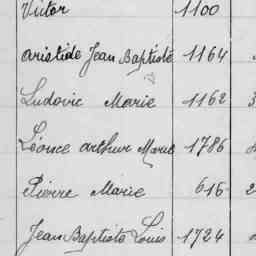 Victor 1100
Aristide Jean Baptiste 1164
Ludovic Marie 1162 3
Léonce Arthur Marie 1786
Pierre Marie 615 2
Jean Baptiste Louis 1724